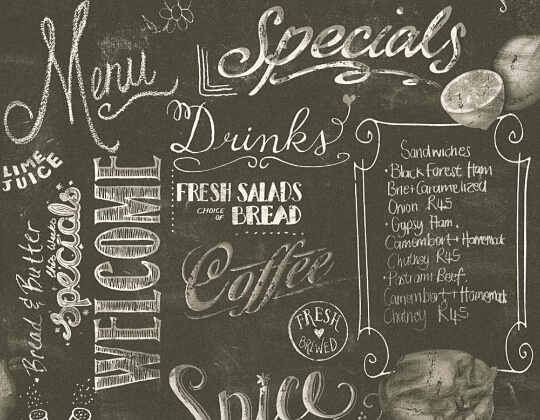 Menu
Specials
Drinks
LIME
JUICE
FRESH SALADS
CHOICE OF BREAD
WELCOME
Bread & Butter
this weeks
Specials
Coffee
FRESH
BREWED
Spice
Sandwiches
• Black Forest Ham
Brie + Caramelized
Onion R45
• Gypsy Ham,
Camembert + Homemade
Chutney R45
• Pastrami Beef
Camembert + Homemade
Chutney R45